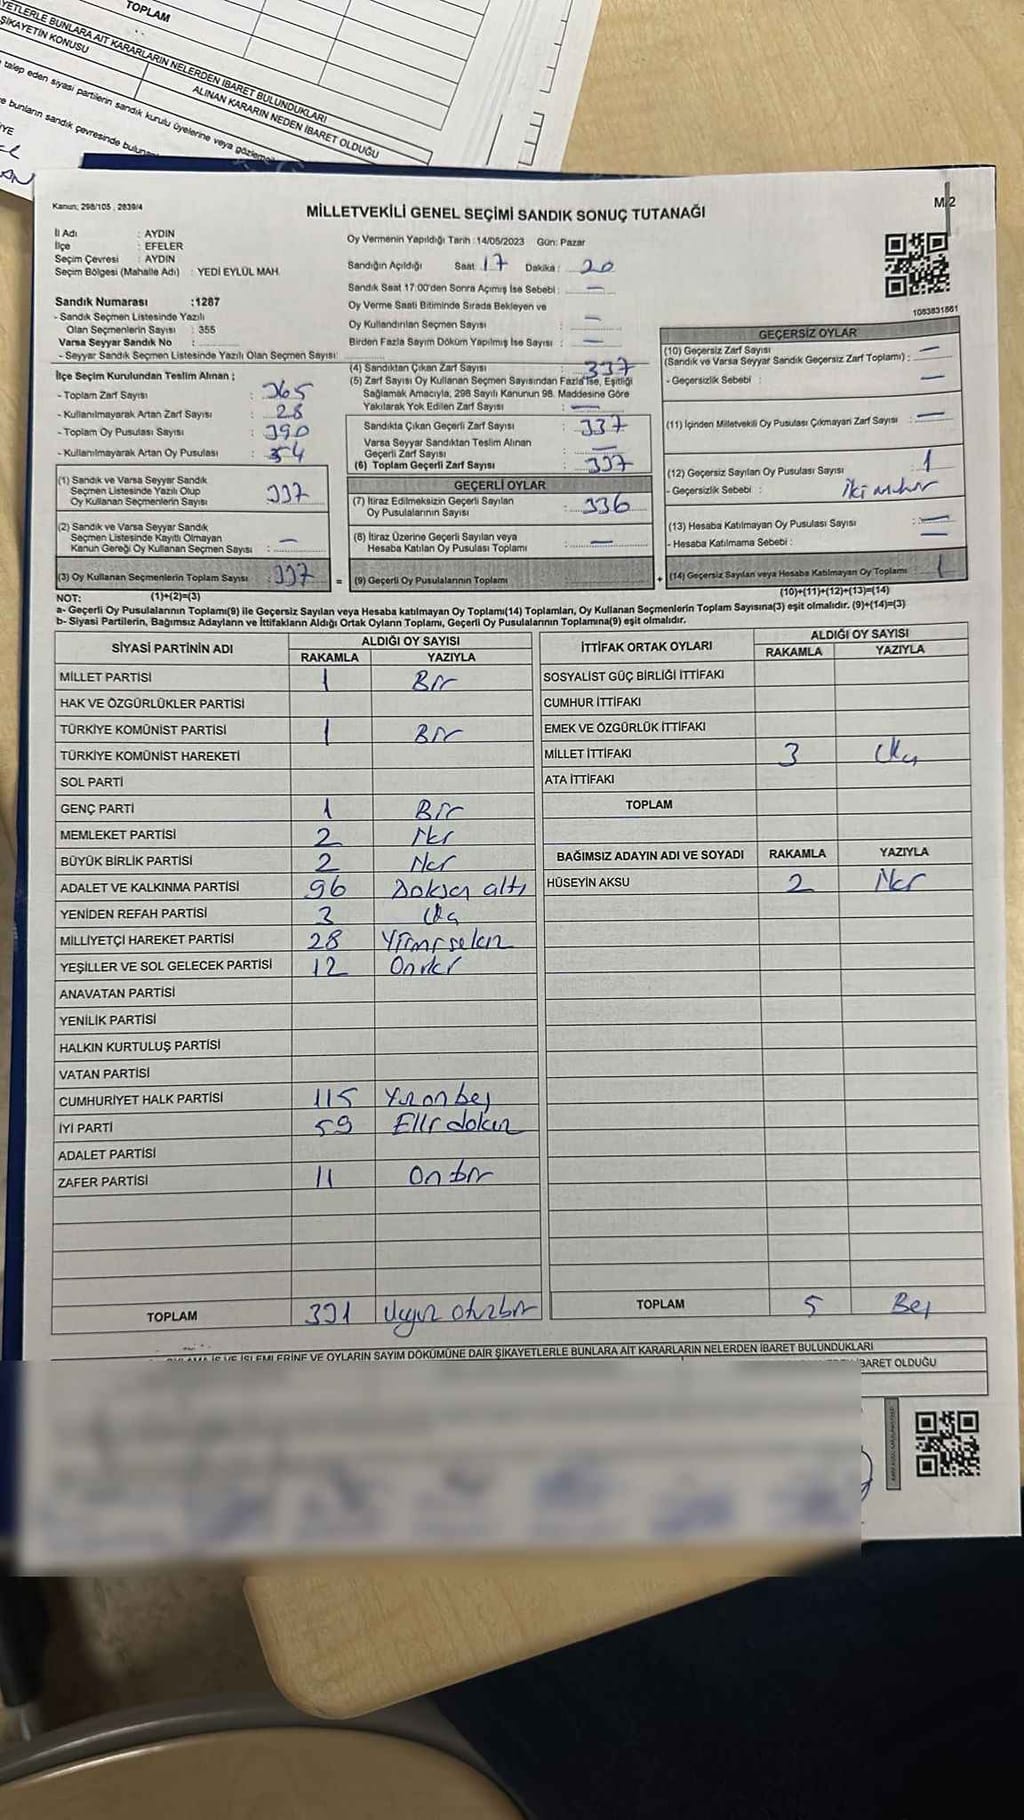 TOPLAM
YETLERLE BUNLARA AİT KARARLARIN NELERDEN İBARET BULUNDUKLARI
ŞİKAYETİN KONUSU
ALINAN KARARIN NEDEN İBARET OLDUĞU
talep eden siyasi partilerin sandık kurulu üyelerine veya
bunların sandık çevresinde
Kanun: 298/105 , 2839/4
MİLLETVEKİLİ GENEL SEÇİMİ SANDIK SONUÇ TUTANAĞI
İl Adı : AYDIN
İlçe : EFELER
Seçim Çevresi : AYDIN
Seçim Bölgesi (Mahalle Adı) : YEDİ EYLÜL MAH.
Oy Vermenin Yapıldığı Tarih :14/05/2023 Gün: Pazar
Sandığın Açıldığı Saat 17 Dakika : 20
Sandık Saat 17:00'den Sonra Açımış İse Sebebi : —
Oy Verme Saati Bitiminde Sırada Bekleyen ve
Oy Kullandırılan Seçmen Sayısı —
Birden Fazla Sayım Döküm Yapılmış İse Sayısı : —
1083831861
Sandık Numarası :1287
- Sandık Seçmen Listesinde Yazılı
Olan Seçmenlerin Sayısı : 355
Varsa Seyyar Sandık No :
- Seyyar Sandık Seçmen Listesinde Yazılı Olan Seçmen Sayısı:
İlçe Seçim Kurulundan Teslim Alınan ;
- Toplam Zarf Sayısı : 365
- Kullanılmayarak Artan Zarf Sayısı : 28
- Toplam Oy Pusulası Sayısı : 390
- Kullanılmayarak Artan Oy Pusulası : 54
(1) Sandık ve Varsa Seyyar Sandık
Seçmen Listesinde Yazılı Olup
Oy Kullanan Seçmenlerin Sayısı : 337
(2) Sandık ve Varsa Seyyar Sandık
Seçmen Listesinde Kayıtlı Olmayan
Kanun Gereği Oy Kullanan Seçmen Sayısı : —
(3) Oy Kullanan Seçmenlerin Toplam Sayısı : 337
(4) Sandıktan Çıkan Zarf Sayısı : 337
(5) Zarf Sayısı Oy Kullanan Seçmen Sayısından Fazla İse, Eşitliği
Sağlamak Amacıyla, 298 Sayılı Kanunun 98. Maddesine Göre
Yakılarak Yok Edilen Zarf Sayısı : —
Sandıkta Çıkan Geçerli Zarf Sayısı : 337
Varsa Seyyar Sandıktan Teslim Alınan
Geçerli Zarf Sayısı : —
(6) Toplam Geçerli Zarf Sayısı : 337
GEÇERLİ OYLAR
(7) İtiraz Edilmeksizin Geçerli Sayılan
Oy Pusulalarının Sayısı : 336
(8) İtiraz Üzerine Geçerli Sayılan veya
Hesaba Katılan Oy Pusulası Toplamı : —
= (9) Geçerli Oy Pusulalarının Toplamı
GEÇERSİZ OYLAR
(10) Geçersiz Zarf Sayısı
(Sandık ve Varsa Seyyar Sandık Geçersiz Zarf Toplamı) : —
- Geçersizlik Sebebi : —
(11) İçinden Milletvekili Oy Pusulası Çıkmayan Zarf Sayısı : —
(12) Geçersiz Sayılan Oy Pusulası Sayısı : 1
- Geçersizlik Sebebi : İki mühür
(13) Hesaba Katılmayan Oy Pusulası Sayısı : —
- Hesaba Katılmama Sebebi : —
+ (14) Geçersiz Sayılan veya Hesaba Katılmayan Oy Toplamı : 1
NOT: (1)+(2)=(3)
(10)+(11)+(12)+(13)=(14)
a- Geçerli Oy Pusulalarının Toplamı(9) ile Geçersiz Sayılan veya Hesaba katılmayan Oy Toplamı(14) Toplamları, Oy Kullanan Seçmenlerin Toplam Sayısına(3) eşit olmalıdır. (9)+(14)=(3)
b- Siyasi Partilerin, Bağımsız Adayların ve İttifakların Aldığı Ortak Oyların Toplamı, Geçerli Oy Pusulalarının Toplamına(9) eşit olmalıdır.
SİYASİ PARTİNİN ADI ALDIĞI OY SAYISI
RAKAMLA YAZIYLA
MİLLET PARTİSİ 1 Bir
HAK VE ÖZGÜRLÜKLER PARTİSİ
TÜRKİYE KOMÜNİST PARTİSİ 1 Bir
TÜRKİYE KOMÜNİST HAREKETİ
SOL PARTİ
GENÇ PARTİ 1 Bir
MEMLEKET PARTİSİ 2 İki
BÜYÜK BİRLİK PARTİSİ 2 İki
ADALET VE KALKINMA PARTİSİ 96 Doksan altı
YENİDEN REFAH PARTİSİ 3 Üç
MİLLİYETÇİ HAREKET PARTİSİ 28 Yirmi sekiz
YEŞİLLER VE SOL GELECEK PARTİSİ 12 On iki
ANAVATAN PARTİSİ
YENİLİK PARTİSİ
HALKIN KURTULUŞ PARTİSİ
VATAN PARTİSİ
CUMHURİYET HALK PARTİSİ 115 Yüz on beş
İYİ PARTİ 59 Elli dokuz
ADALET PARTİSİ
ZAFER PARTİSİ 11 On bir
TOPLAM 331 Üçyüz otuzbir
İTTİFAK ORTAK OYLARI ALDIĞI OY SAYISI
RAKAMLA YAZIYLA
SOSYALİST GÜÇ BİRLİĞİ İTTİFAKI
CUMHUR İTTİFAKI
EMEK VE ÖZGÜRLÜK İTTİFAKI
MİLLET İTTİFAKI 3 Üç
ATA İTTİFAKI
TOPLAM
BAĞIMSIZ ADAYIN ADI VE SOYADI RAKAMLA YAZIYLA
HÜSEYİN AKSU 2 İki
TOPLAM 5 Beş
İŞ VE İŞLEMLERİNE VE OYLARIN SAYIM DÖKÜMÜNE DAİR ŞİKAYETLERLE BUNLARA AİT KARARLARIN NELERDEN İBARET BULUNDUKLARI
İBARET OLDUĞU